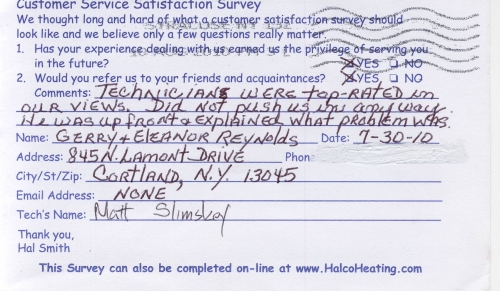 Customer Service Satisfaction Survey
We thought long and hard of what a customer satisfaction survey should
look like and we believe only a few questions really matter.
1. Has your experience dealing with us earned us the privilege of serving you
in the future? YES NO
2. Would you refer us to your friends and acquaintances? YES NO
Comments: TECHNICIANS WERE TOP-RATED in
OUR VIEWS. DID NOT PUSH US IN ANY WAY.
He WAS UP FRONT & EXPLAINED WHAT PROBLEM WAS.
Name: GERRY + ELEANOR REYNOLDS Date: 7-30-10
Address: 845 N. LAMONT DRIVE Phon
City/St/Zip: CORTLAND, N.Y. 13045
Email Address: NONE
Tech's Name: Matt
Thank you,
Hal Smith
This Survey can also be completed on-line at www.HalcoHeating.com